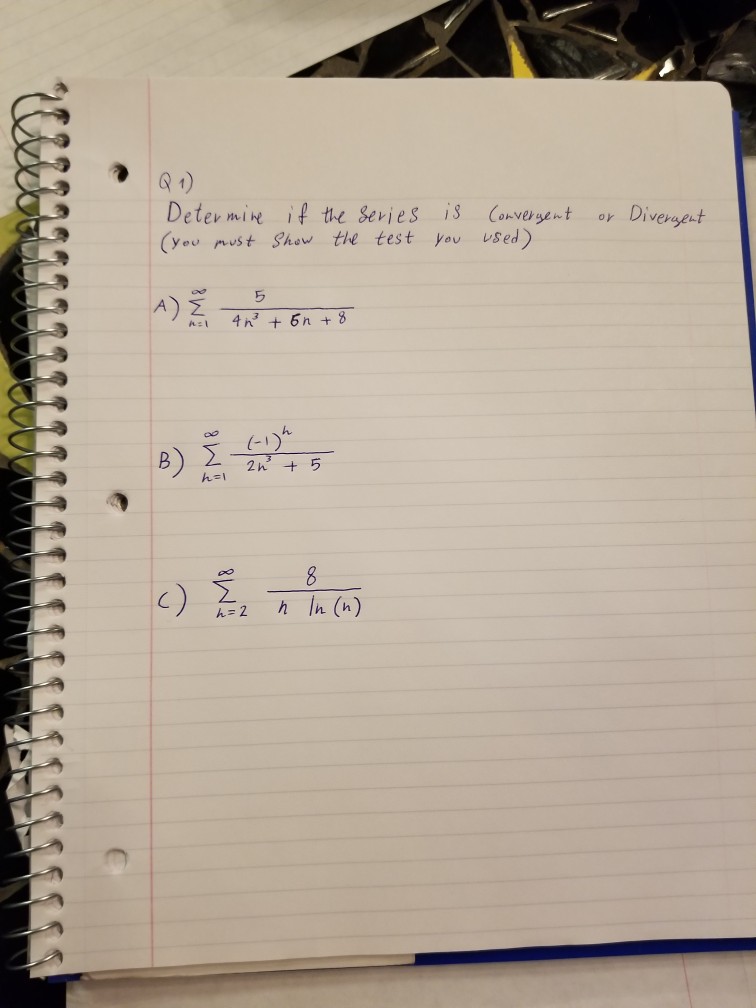 Q 1)
Determine if the Series is Convergent or Divergent
(you must Show the test you used)
A) ∞ Σ n=1 5 / 4n³ + 5n + 8
B) ∞ Σ n=1 (-1)ⁿ / 2n³ + 5
C) ∞ Σ n=2 8 / n ln (n)